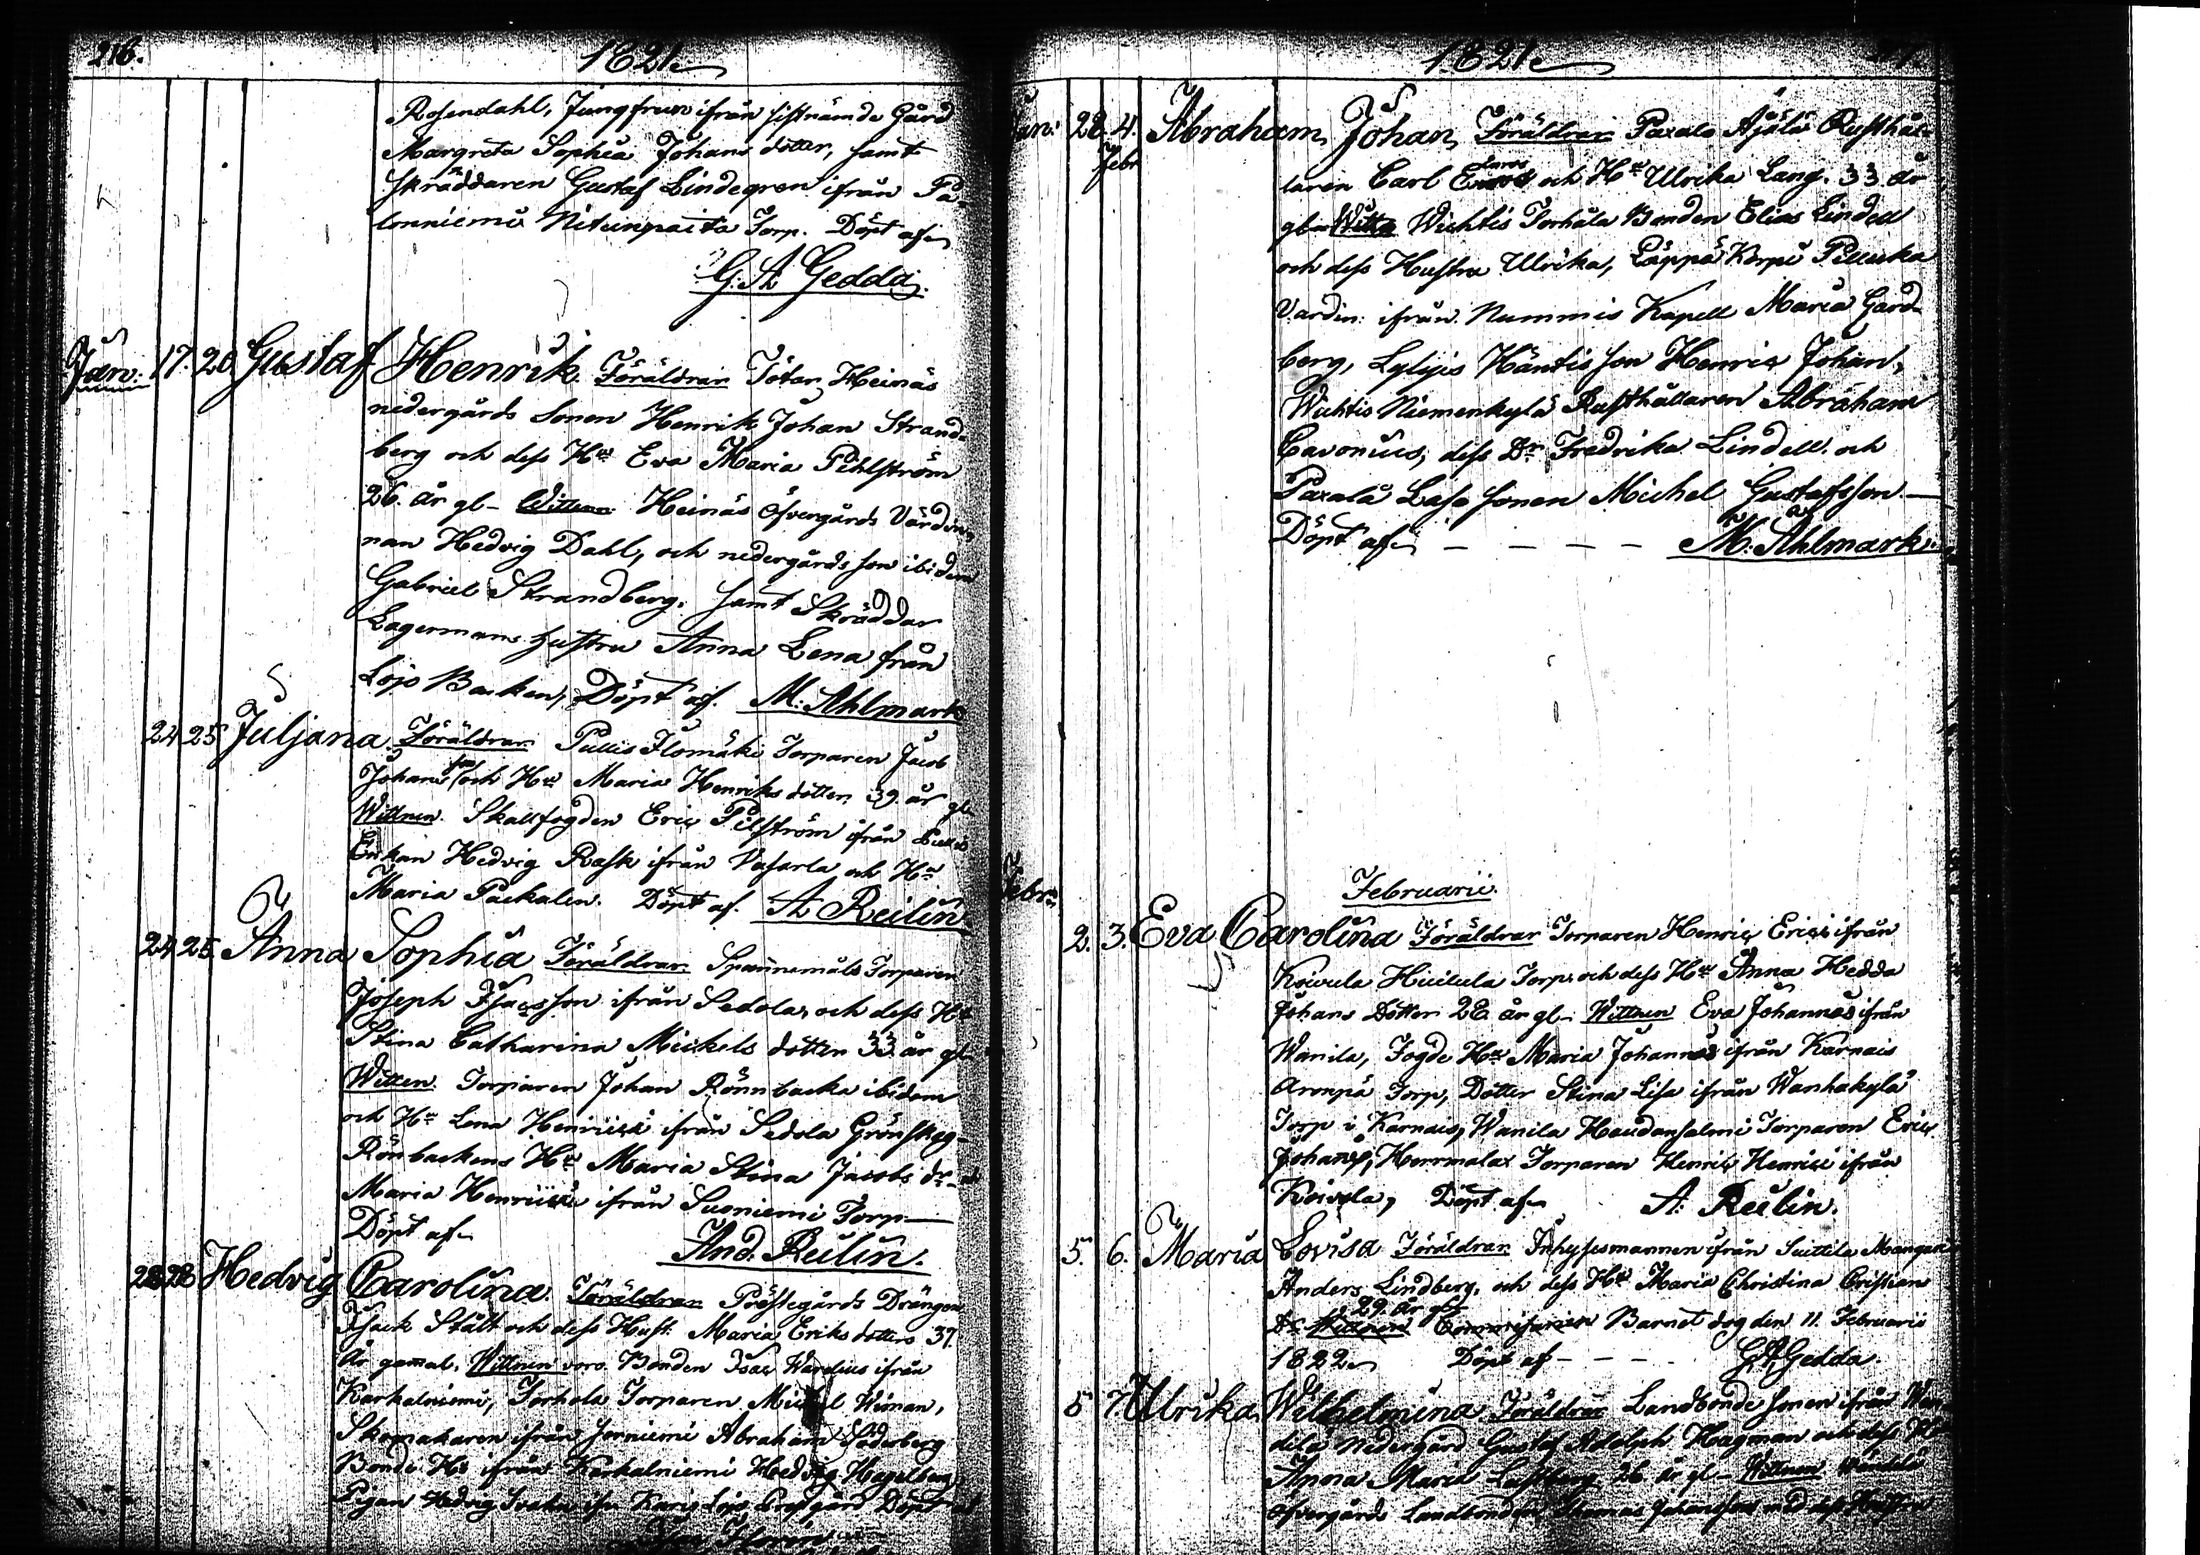 216.
1821
Rosendahl, Jungfrun ifrån sistnämde Gård
Margreta Sophia Johans dotter, samt
skräddaren Gustaf Lindegren ifrån Pa-
lonniemi Torp. Döpt af
G. A Gedda.
Jan: 17. 20 Gustaf Henrik. Föräldrar Heinäs
nedergårds Sonen Henrik Johan Strand-
berg och dess Hu Eva Maria Pihlström
26. år gl- Wittnen Heinäs Öfvergårds Värdin-
nan Hedvig Dahl, och nedergårds son ibidem
Gabriel Strandberg. samt Skräddar
Lagermans hustru Anna Lena från
Lojo Backen, Döpt af. M: Ahlmark
24 25 Juljana Föräldrar Pullis Ilomäki Torparen Jacob
Johans son och Hu Maria Henriks dotter 39. år gl-
Wittnen. Skallfogden Eric Pilström ifrån Pullis
Enkan Hedvig Rask ifrån Vasarla och Hu
Maria Packalen. Döpt af. A Reilin
24 25 Anna Sophia Föräldrar Torparen
Joseph Isacsson ifrån Sedola, och dess Hu
Stina Catharina Mickels dotter 33. år gl-
Witten. Torparen Johan Rönnbacka ibidem
och Hu Lena ifrån Sedola
Rönbackens Hu Maria Stina Jacobs dr
Maria ifrån Suoniemi Torp
Döpt af
And. Reilin.
28 28 Hedvig Carolina. Föräldrar Prästegårds Drängen
Isack Stålt och dess Hust. Maria Eriks dotter 37.
År gamal. Wittnen voro Bonden Isac Wardius ifrån
Karkalniemi, Torhola Torparen Michel Wiman,
Skomakaren ifrån Jorniemi Abraham Söderberg
Bonde Hu ifrån Karkalniemi Hedvig Hagelberg
Pigan Hedvig ifr. Karis Lojo Prestgård Döpt af
1821
Jan: 28 4. Febr Abraham Johan, Föräldrar Paxalo Äjälä Rusthål-
laren Carl och Hu Ulrika Lang. 33 år
gl- Wittn Wichtis Torhåla Bonden Elias Lindell
och dess Hustru Ulrika, Läppä Korpi
Vardin: ifrån Nummis Kapell Maria Gard-
berg, Lylyis Häntis son Henric Johan,
Wichtis Niemenkylä Rusthållaren Abraham
Cavonius, dess Dr Fredrika Lindell och
Paxala Lasa sonen Michel Gustafsson
Döpt af - - - - - M: Ahlmark
Februarii.
Febr 2. 3. Eva Carolina Föräldrar Torparen Henric ifrån
Koivula Torp och dess Hu Anna Hedda
Johans Dotter 28 år gl- Wittnen Eva ifrån
Wanila, Fogde Hu Maria ifrån Karnais
Torp, Dotter Stina Lisa ifrån Wanhakylä
Torp i Karnais, Wanila Haudansalmi Torparen Eric
Johans, Hermala Torparen Henric Henrici ifrån
Koivola, Döpt af A: Reilin.
5. 6. Maria Lovisa Föräldrar Inhysesmannen ifrån Suittila
Anders Lindberg, och dess Hu Maria Christina Cristians
Dr 29. år gl- Wittnen Barnet dog den 11. Februarii
1822. Döpt af - - - G A Gedda.
5 7. Ulrika Wilhelmina Föräldrar Landbonde sonen ifrån
Nedergård Gustaf Adolph Hagman och dess Hu
Anna Maria 26 år gl- Wittnen
Öfvergårds Landbonden